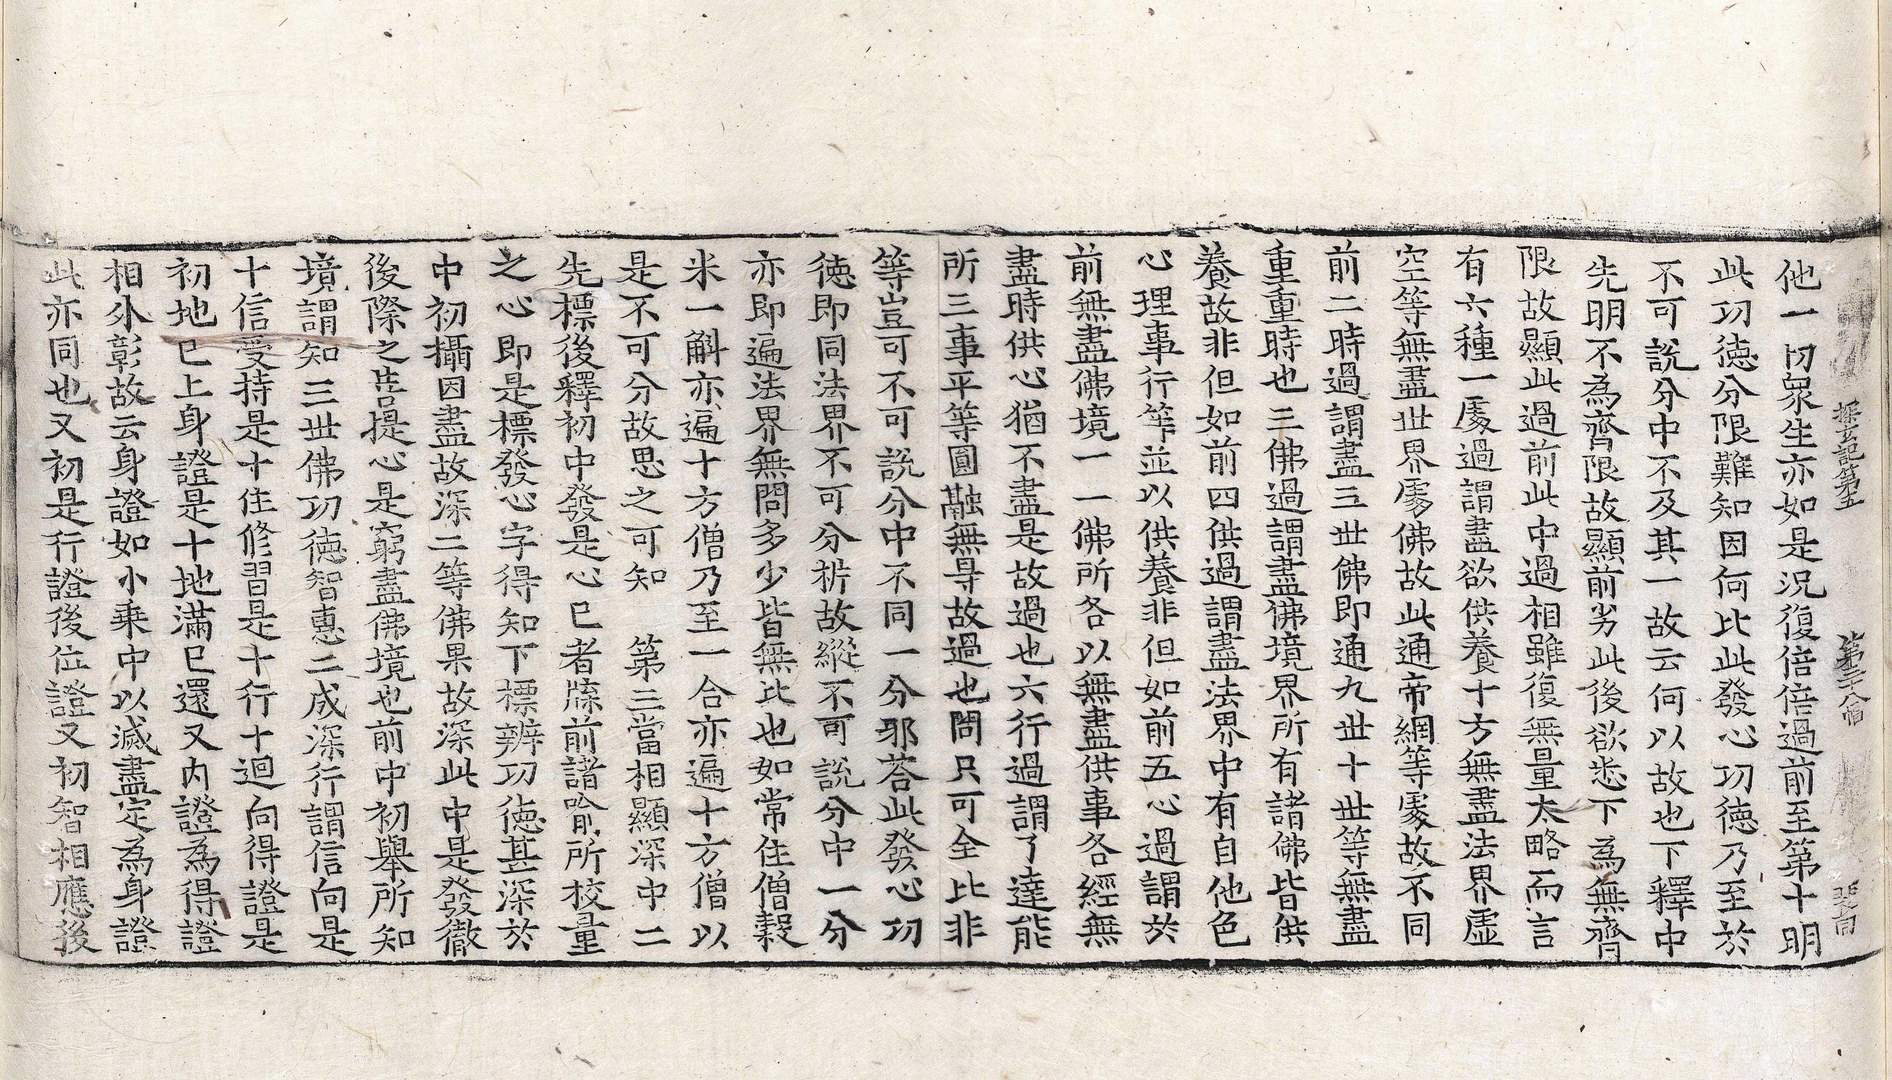 探玄記第五
第三會
他一切衆生亦如是況復倍倍過前至第十明
此功德分限難知因何比此發心功德乃至於
不可說分中不及其一故云何以故也下釋中
先明不為齊限故顯前劣此後欲悉下為無齊
限故顯此過前此中過相雖復無量太略而言
有六種一處過謂盡欲供養十方無盡法界虛
空等無盡世界處佛故此通帝網等處故不同
前二時過謂盡三世佛即通九世十世等無盡
重重時也三佛過謂盡佛境界所有諸佛皆供
養故非但如前四供過謂盡法界中有自他色
心理事行等並以供養非但如前五心過謂於
前無盡佛境一一佛所各以無盡供事各經無
盡時供心猶不盡是故過也六行過謂了達能
所三事平等圓融無㝵故過也問只可全比非
等豈可不可說分中不同一分耶荅此發心功
德即同法界不可分折故縱不可說分中一分
亦即遍法界無問多少皆無比也如常住僧穀
米一斛亦遍十方僧乃至一合亦遍十方僧以
是不可分故思之可知　第三當相顯深中二
先標後釋初中發是心已者牒前諸喻所校量
之心即是標發心字得知下標辨功德甚深於
中初攝因盡故深二等佛果故深此中是發徹
後際之菩提心是窮盡佛境也前中初舉所知
境謂知三世佛功德智惠二成深行謂信向是
十信受持是十住修習是十行十迴向得證是
初地已上身證是十地滿已還又內證為得證
相外彰故云身證如小乘中以滅盡定為身證
此亦同也又初是行證後位證又初智相應後